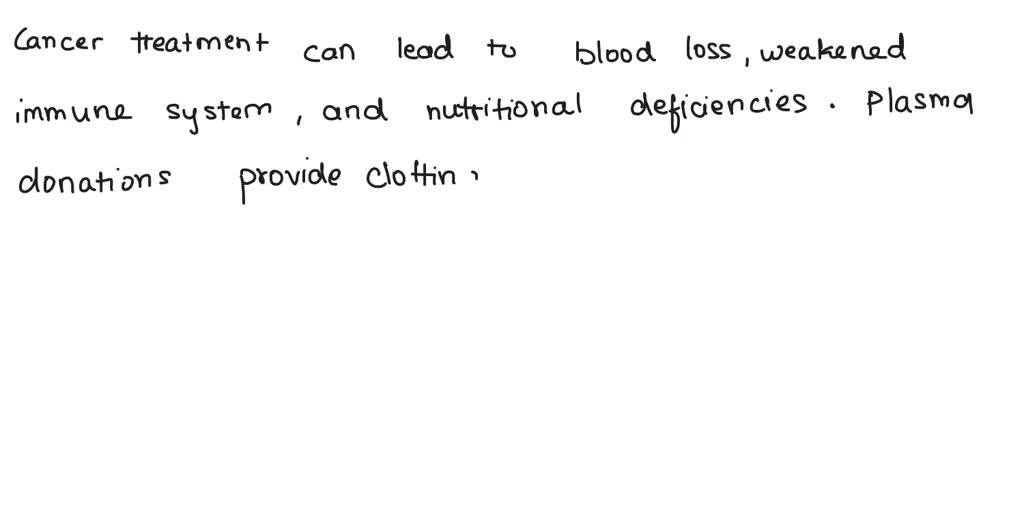 Cancer treatment can lead to blood loss, weakened
immune system, and nutritional deficiencies. Plasma
donations provide clottin